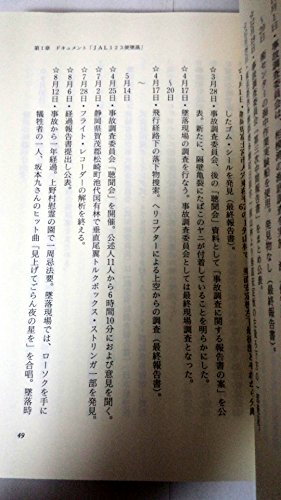 第1章 ドキュメント「JAL123便墜落」
したゴム・シールを発見(最終報告書)。
☆3月28日・事故調査委員会、後の「聴聞会」資料として「事故調査に関する報告書の案」を公
表。新たに、隔壁亀裂にたばこのヤニが付着していることを明らかにした。
☆4月17日・墜落現場の調査を行なう。事故調査委員会としては最終現場調査となった。
~20日
☆4月17日・飛行経路下の落下物捜索。ヘリコプターによる上空からの調査(最終報告書)。
~
5月14日
☆4月25日・事故調査委員会「聴聞会」を開催。公述人11人から6時間10分におよび意見を聞く。
☆7月2日・静岡県賀茂郡松崎町池代国有林で垂直尾翼トルクボックス・ストリンガ一部を発見。
☆7月28日・フライト・レコーダーの解析を終える。
☆8月6日・経過報告書提出し公表。
☆8月12日・事故から一年経過。上野村慰霊の園で一周忌法要。墜落現場では、ローソクを手に
犠牲者の一人、坂本九さんのヒット曲「見上げてごらん夜の星を」を合唱。墜落時
49